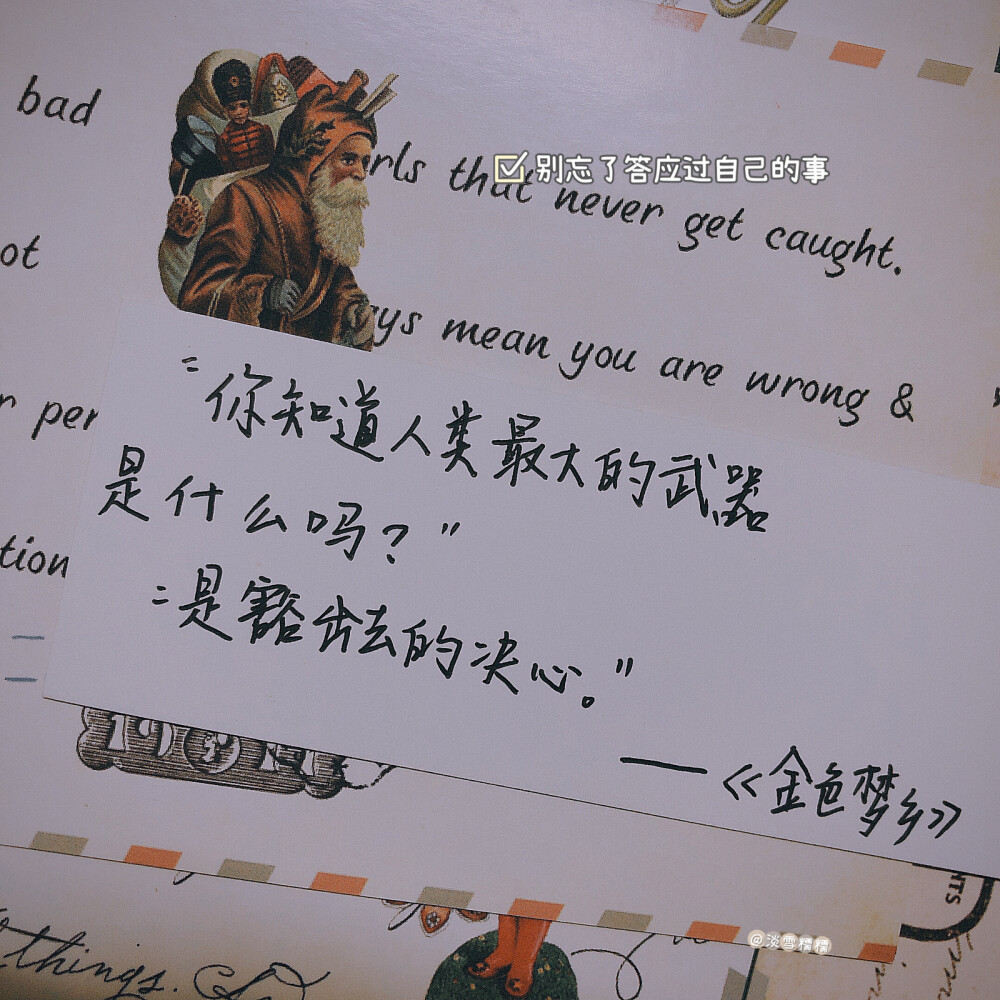 bad
rls that never get caught.
别忘了答应过自己的事
ot
ys mean you are wrong &
r per
"你知道人类最大的武器
是什么吗?"
"是豁出去的决心。"
tion
——《金色梦乡》
things.
@淡雪糯糯